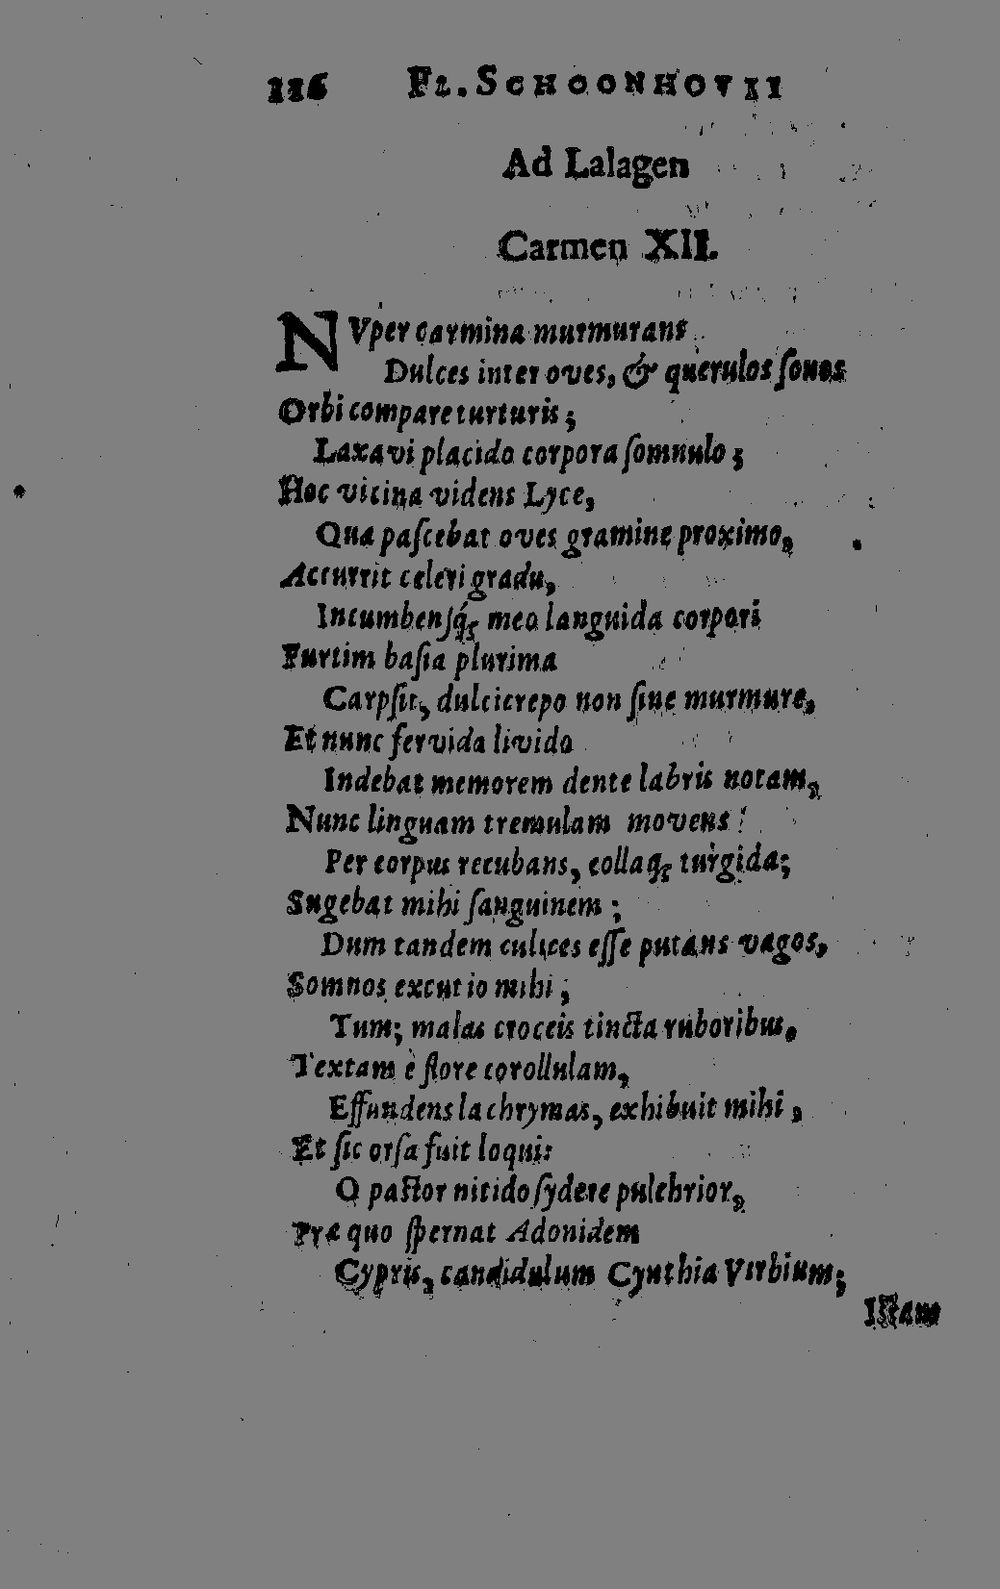 116 FL. SCHOONHOVII
Ad Lalagen
Carmen XII.
NVper carmina murmurans
Dulces inter oves, & querulos ſonos
Orbi compare turturis;
Laxavi placido corpora ſomnulo;
Hoc vicina videns Lyce,
Qua paſcebat oves gramine proximo,
Accurrit celeri gradu,
Incumbenſq́; meo languida corpori
Furtim baſia plurima
Carpſit, dulcicrepo non ſine murmure,
Et nunc fervida livido
Indebat memorem dente labris notam,
Nunc linguam tremulam movens
Per corpus recubans, collaq; turgida;
Sugebat mihi ſanguinem;
Dum tandem culices eſſe putans vagos,
Somnos excutio mihi;
Tum; malas croceis tincta ruboribus,
Textam è flore corollulam,
Effundens lachrymas, exhibuit mihi,
Et ſic orſa fuit loqui:
O paſtor nitido ſydere pulchrior,
Præ quo ſpernat Adonidem
Cypris, candidulum Cynthia Virbium;
Iſtam